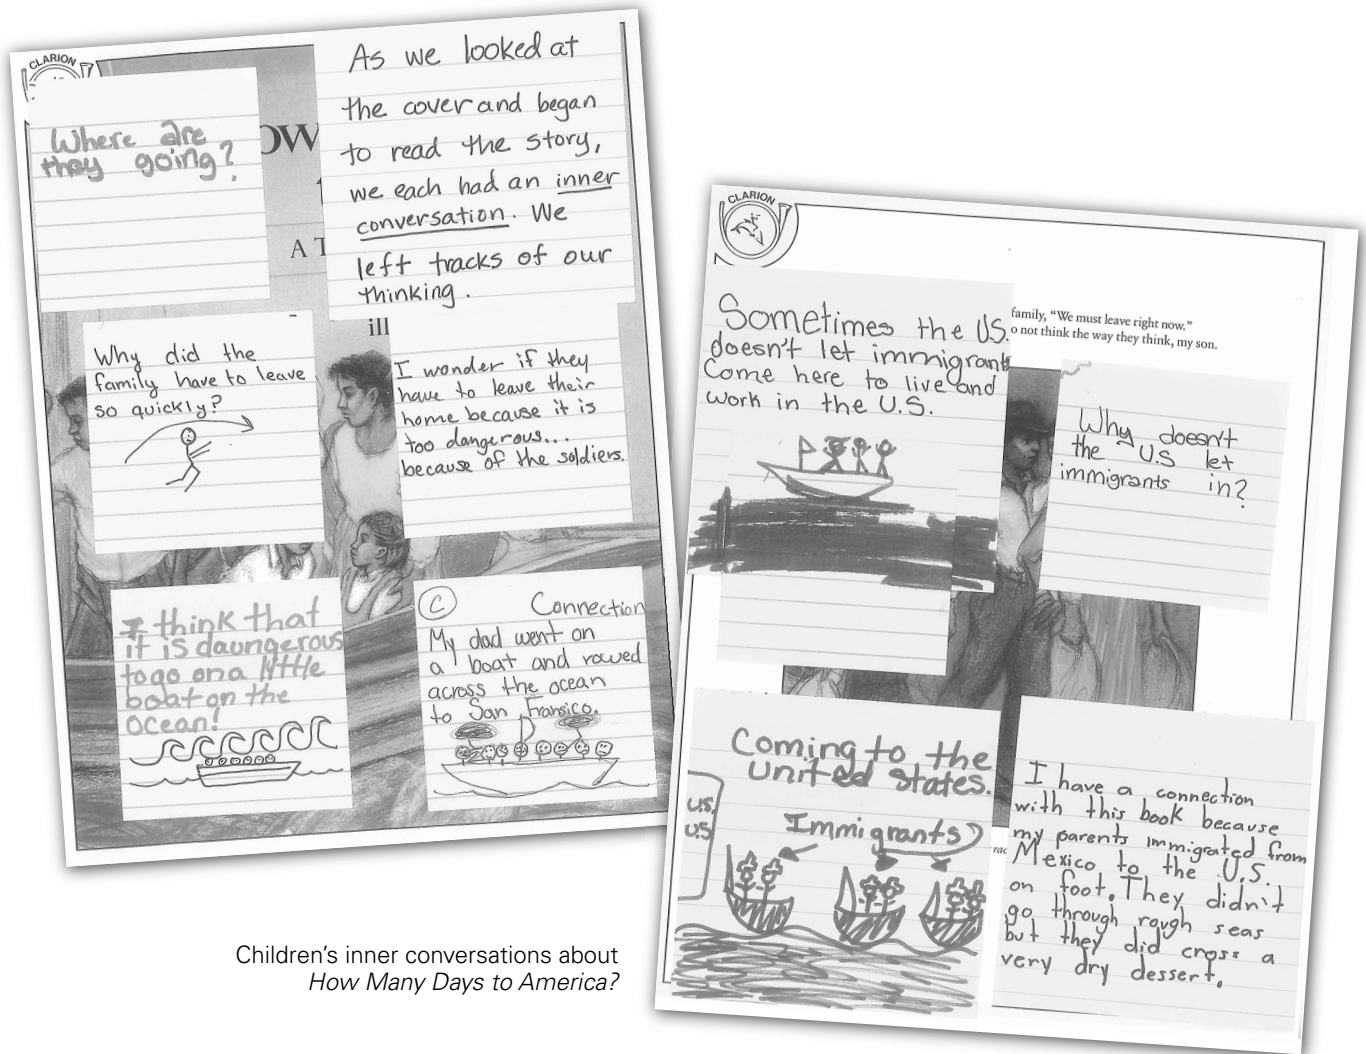 CLARION
Where are
they going?
OW
A T
ill
As we looked at
the cover and began
to read the story,
we each had an inner
conversation. We
left tracks of our
thinking.
Why did the
family have to leave
so quickly?
I wonder if they
have to leave their
home because it is
too dangerous...
because of the soldiers.
I think that
it is daungerous
to go on a little
boat on the
ocean!
C Connection
My dad went on
a boat and rowed
across the ocean
to San Fransico.
CLARION
family, “We must leave right now.”
o not think the way they think, my son.
Sometimes the U.S.
doesn't let immigrants
come here to live and
work in the U.S.
Why doesn't
the U.S let
immigrants in?
Coming to the
united states.
U.S.
U.S
Immigrants
I have a connection
with this book because
my parents immigrated from
Mexico to the U.S.
on foot. They didn't
go through rough seas
but they did cross a
very dry dessert.
Children’s inner conversations about
How Many Days to America?